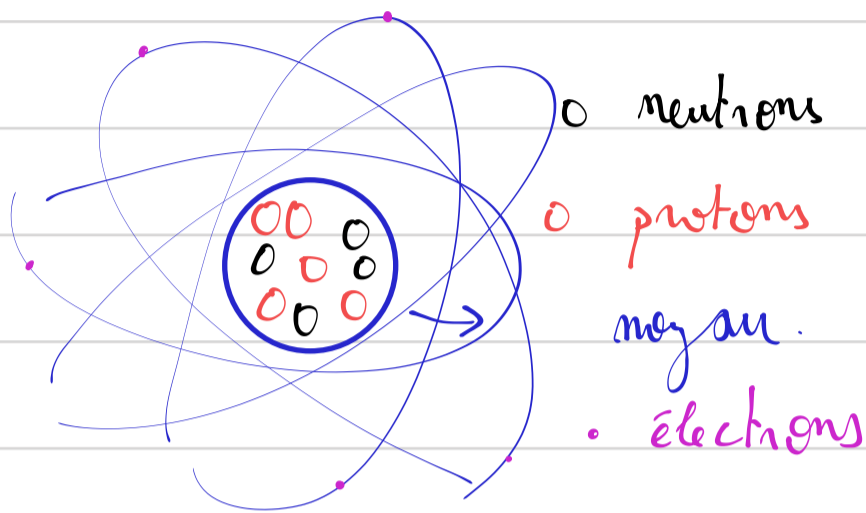 neutrons
protons
noyau.
électrons